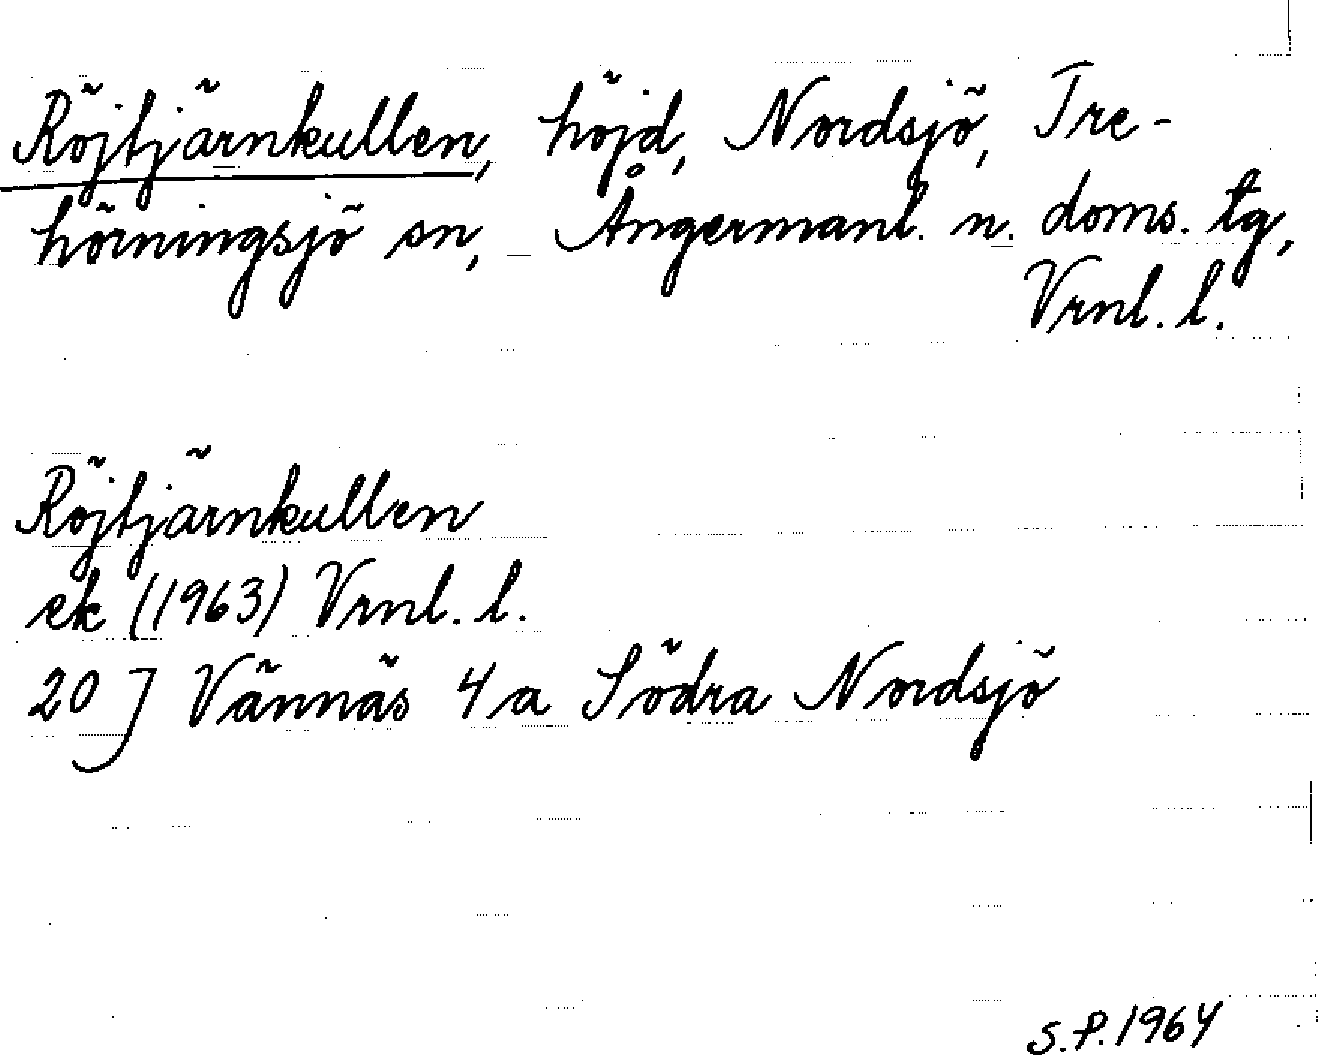 Röjtjärnkullen, höjd, Nordsjö, Tre-
hörningsjö sn, Ångermanl. n. doms. tg,
Vrnl. l.
Röjtjärnkullen
ek (1963) Vrnl. l.
20 J Vännäs 4a Södra Nordsjö
S.P. 1964